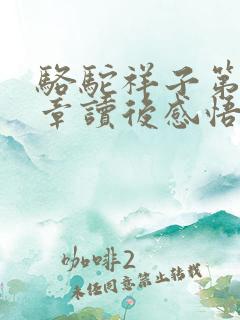 駱駝祥子第
章讀後感悟
咖啡2
未經同意禁止轉載